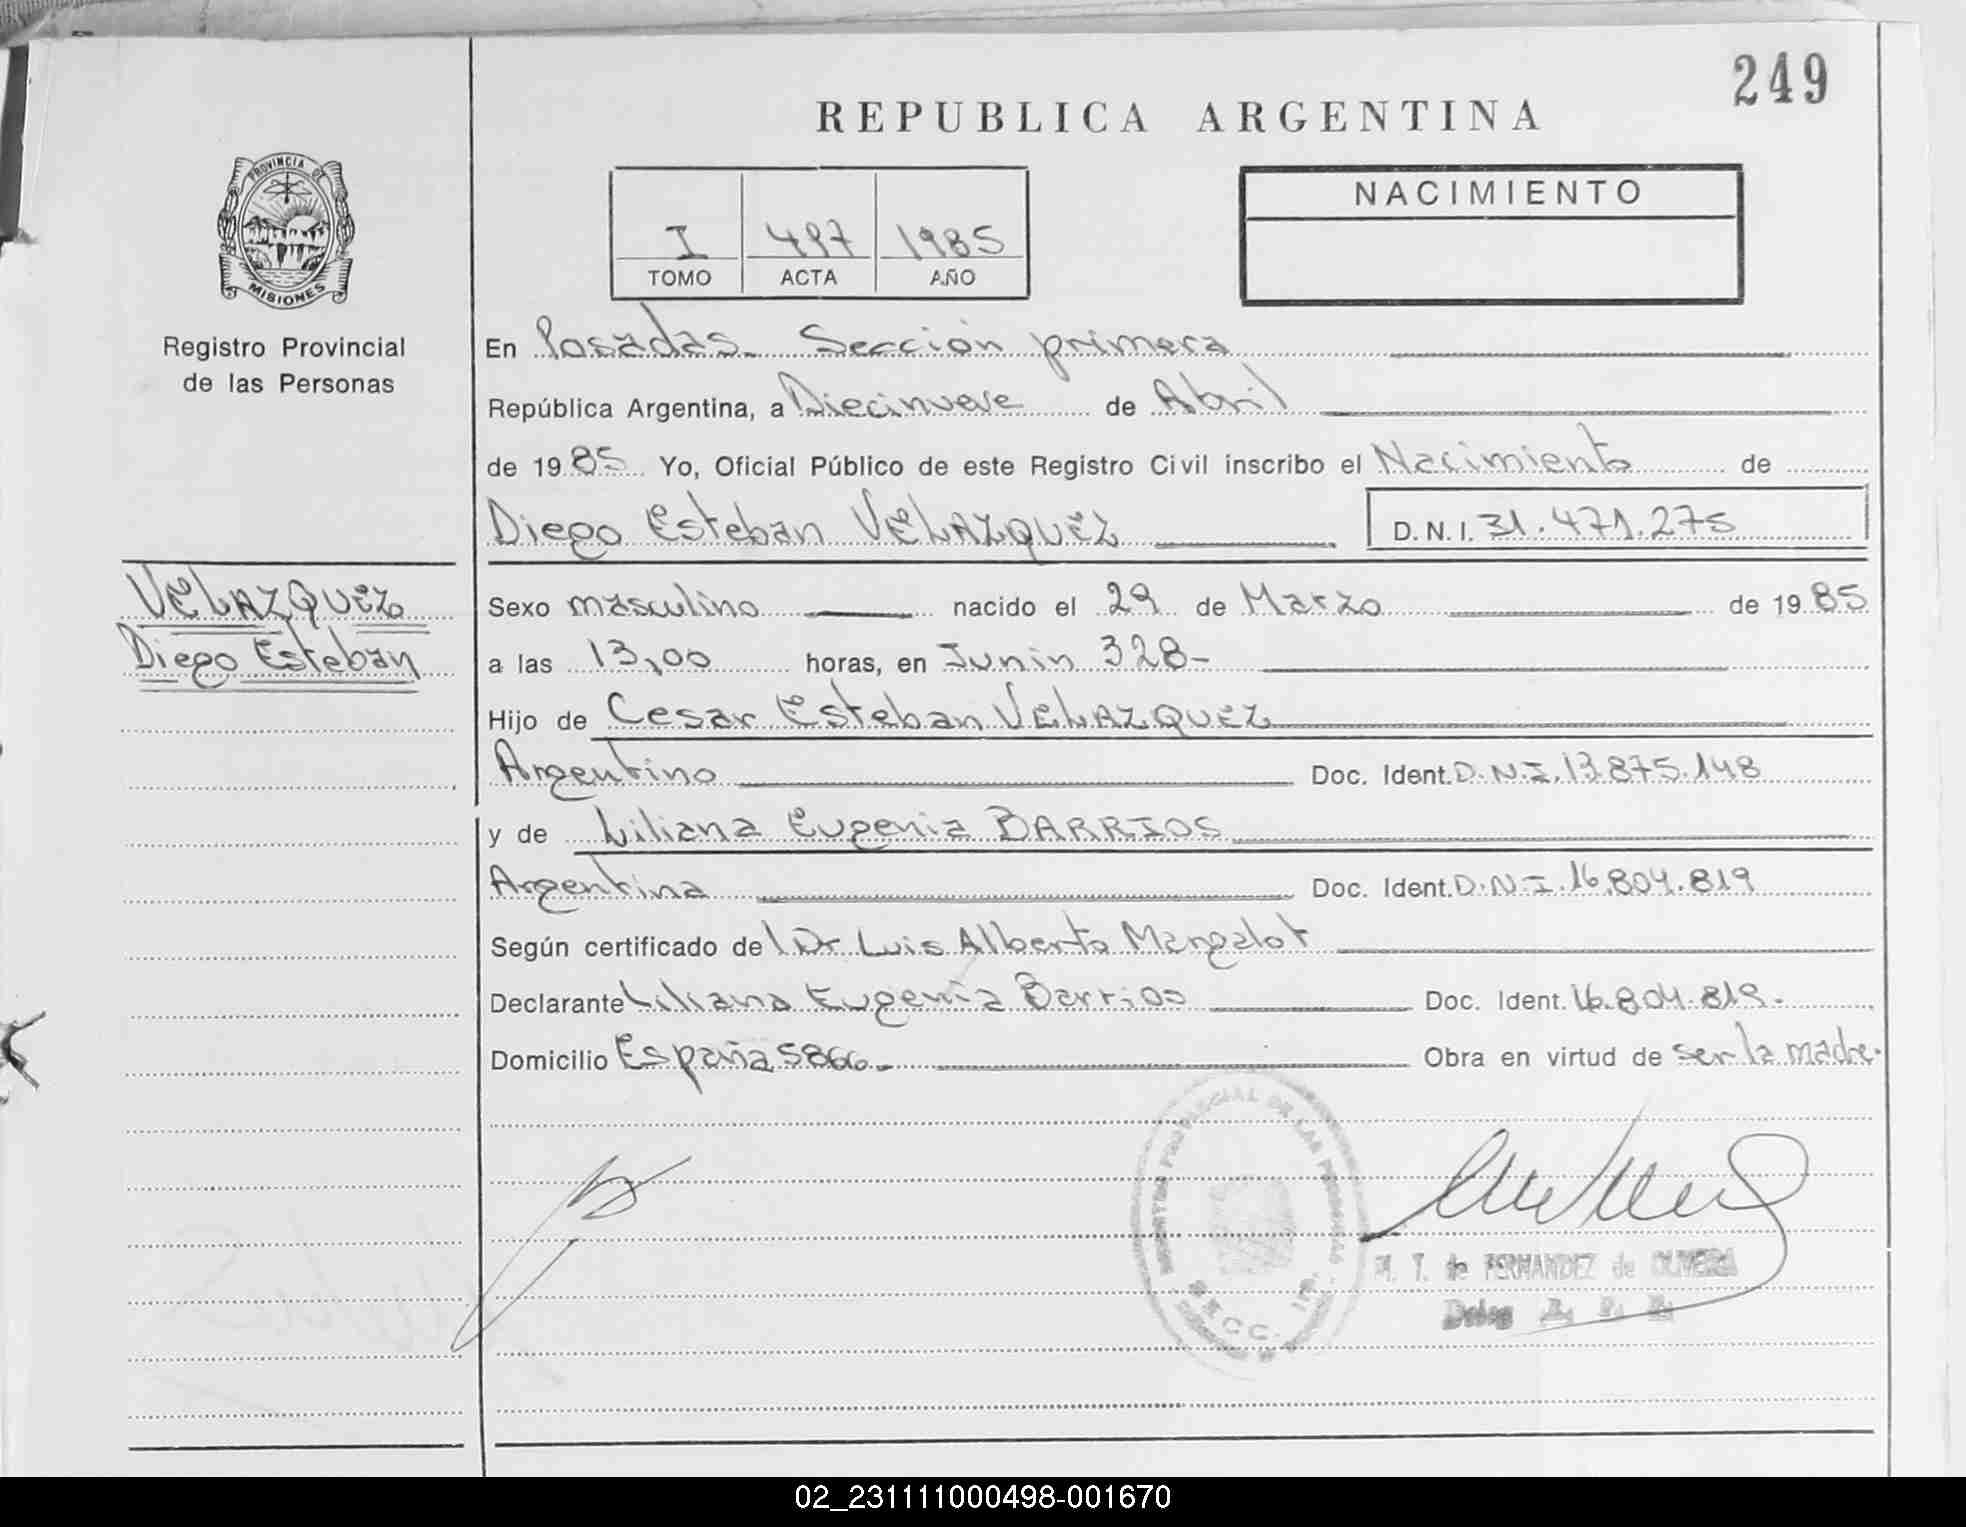 249
REPUBLICA ARGENTINA
PROVINCIA DE
MISIONES
Registro Provincial
de las Personas
I 497 1985
TOMO ACTA AÑO
NACIMIENTO
En Posadas. Sección primera
República Argentina, a Diecinueve de Abril
de 1985 Yo, Oficial Público de este Registro Civil inscribo el Nacimiento de
Diego Esteban VELAZQUEZ D.N.I. 31.471.275
VELAZQUEZ
Diego Esteban
Sexo masculino nacido el 29 de Marzo de 1985
a las 13,00 horas, en Junin 328-
Hijo de Cesar Esteban VELAZQUEZ
Argentino Doc. Ident. D.N.I. 13.875.148
y de Liliana Eugenia BARRIOS
Argentina Doc. Ident. D.N.I. 16.804.819
Según certificado de Dr. Luis Alberto Mangalot
Declarante Liliana Eugenia Barrios Doc. Ident. 16.804.819.
Domicilio España 5866.- Obra en virtud de ser la madre.
M. T. de FERNANDEZ de OLIVERA
Deleg
02_231111000498-001670